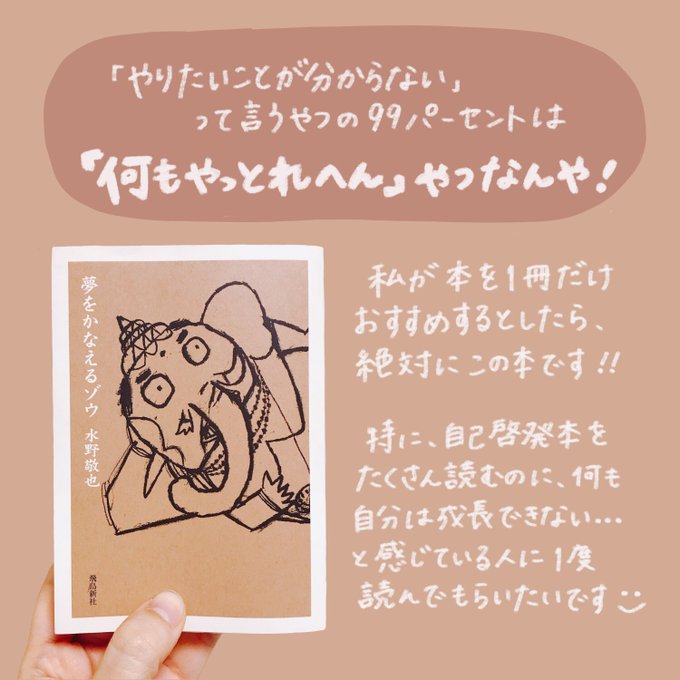 「やりたいことが分からない」
って言うやつの99パーセントは
「何もやっとれへん」やつなんや！
夢をかなえるゾウ 水野敬也
飛鳥新社
私が本を1冊だけ
おすすめするとしたら、
絶対にこの本です!!
特に、自己啓発本を
たくさん読むのに、何も
自分は成長できない…
と感じている人に1度
読んでもらいたいです